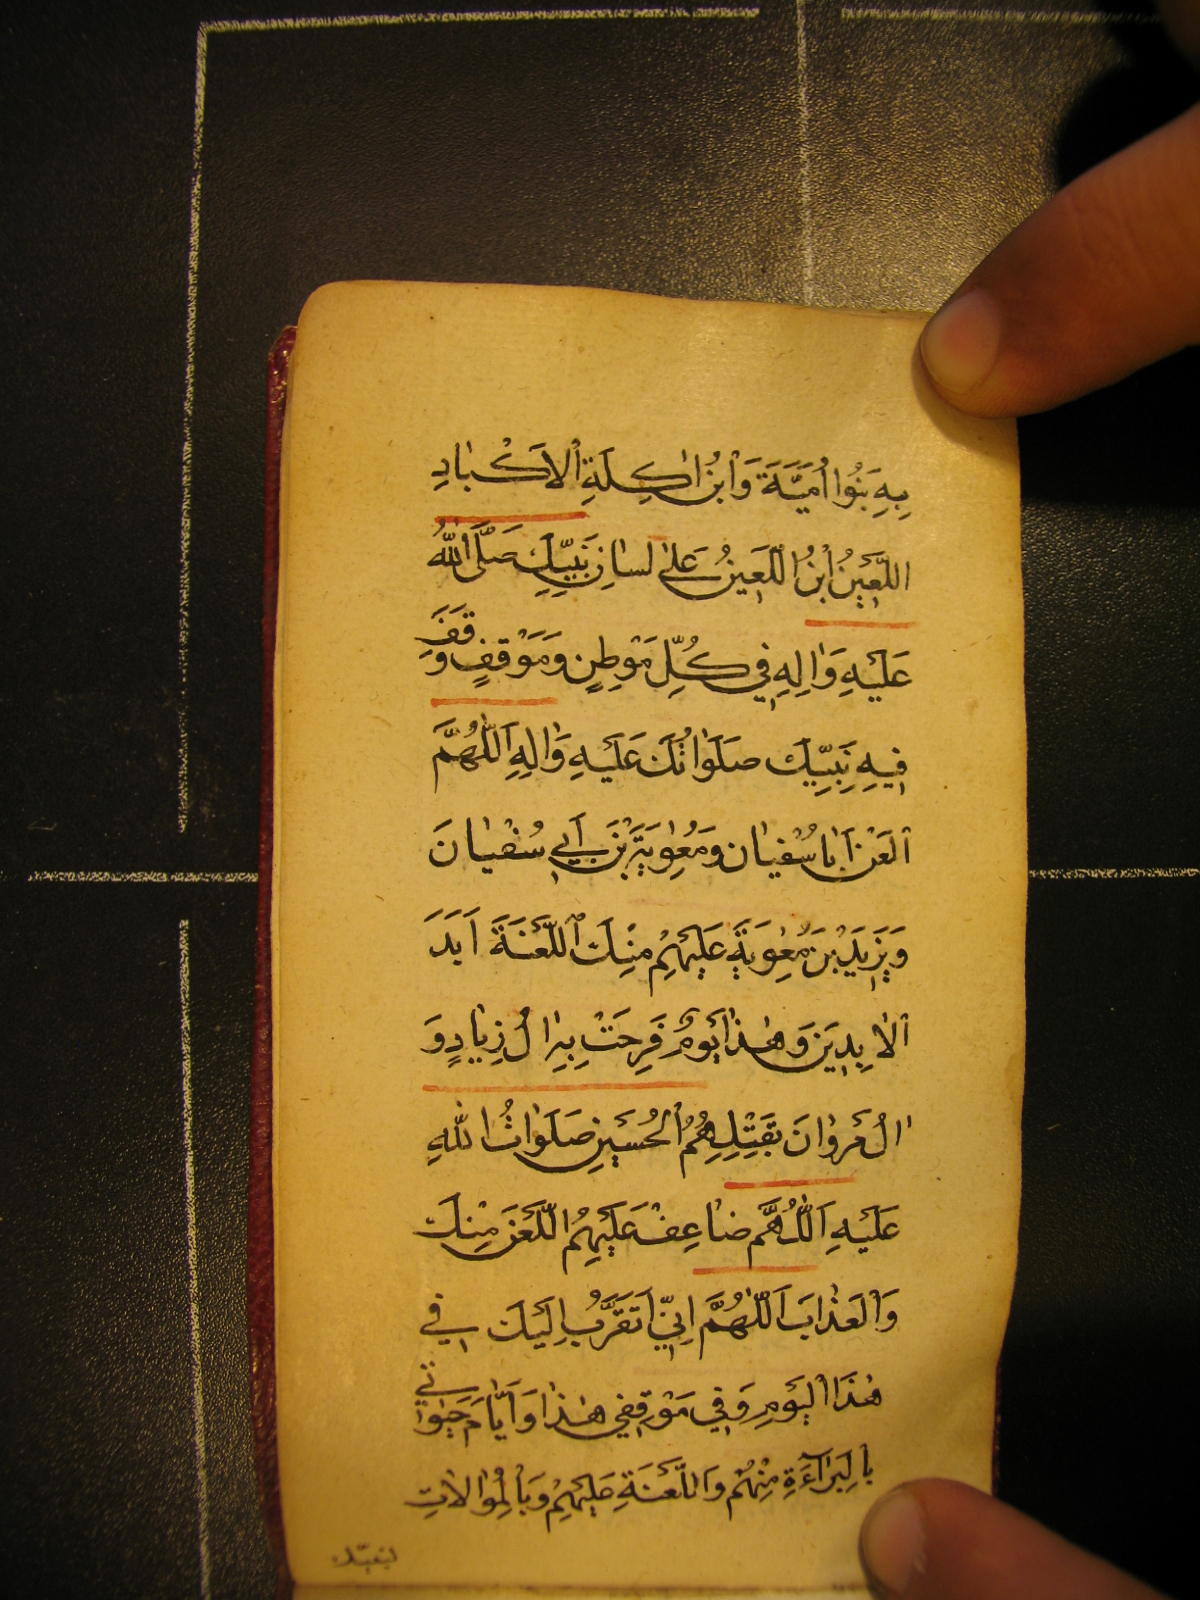 بِهِ بَنُوا اُمَيَّةَ وَابْنُ اٰكِلَةِ الْاَكْبٰادِ
اللَّعٖينُ ابْنُ اللَّعٖينُ عَلىٰ لسٰانِ نَبِيِّكَ صَلَّى اللّٰهُ
عَلَيْهِ وَاٰلِهِ فٖي كُلِّ مَوْطِنٍ وَمَوْقِفٍ وَقَفَ
فٖيهِ نَبِيِّكَ صَلَوٰاتُكَ عَلَيْهِ وَاٰلِهِ اَللّٰهُمَّ
الْعَنْ اَبٰا سُفْيٰان وَمُعٰوِيَةَ بْنَ اَبٖي سُفْيٰانَ
وَيَزٖيدَ بْنَ مُعٰوِيَةَ عَلَيْهِمْ مِنْكَ اللَّعْنَةَ اَبَدَ
الْاٰبِدٖينَ وَهٰذٰا يَوْمٌ فَرِحَتْ بِهِ اٰلُ زِيٰادٍ وَ
اٰلُ مَرْوٰانَ بِقَتْلِهِمُ الْحُسَيْنِ صَلَوٰاتُ اللّٰهِ
عَلَيْهِ اَللّٰهُمَّ ضٰاعِفْ عَلَيْهِمُ اللَّعْنَ مِنْكَ
وَالْعَذٰابَ اَللّٰهُمَّ اِنّٖي اَتَقَرَّبُ اِلَيْكَ فٖي
هٰذَا الْيَوْمِ وَفٖي مَوْقِفٖي هٰذٰا وَاَيّٰامَ حَيٰوتٖي
بِالْبَرٰآءَةِ مِنْهُمْ وَاللَّعْنَةِ عَلَيْهِمْ وَبِالْمُوٰالٰاتِ
لنبيّك